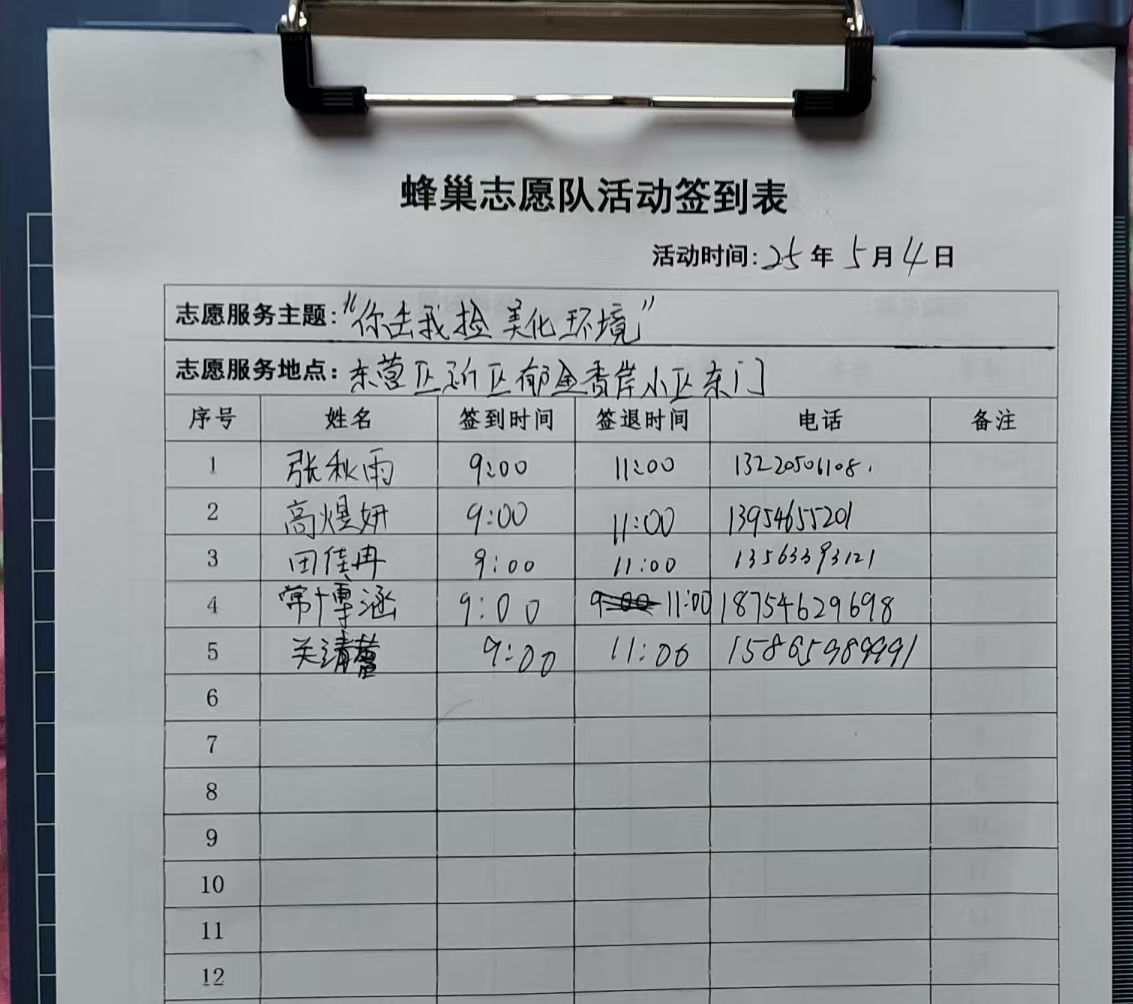 蜂巢志愿队活动签到表
活动时间:25年5月4日
志愿服务主题:"你丢我捡 美化环境"
志愿服务地点:东营区新区郁金香岸小区东门
序号 姓名 签到时间 签退时间 电话 备注
1 张秋雨 9:00 11:00 13220506108.
2 高煜妍 9:00 11:00 13954655201
3 田佳冉 9:00 11:00 13563393121
4 常博涵 9:00 11:00 18754629698
5 关清 9:00 11:00 15865989991
6
7
8
9
10
11
12